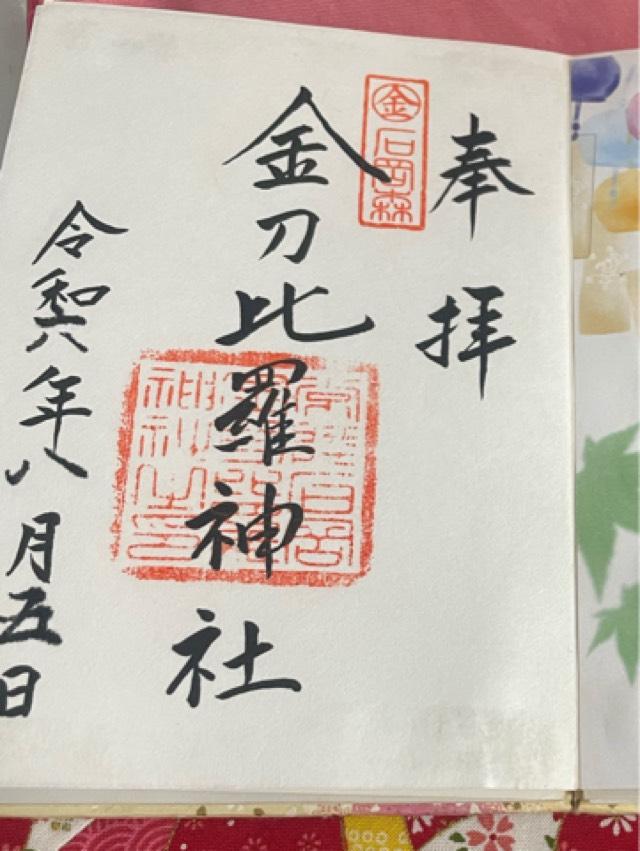 奉拝
金 石岡森
金刀比羅神社
令和六年八月五日